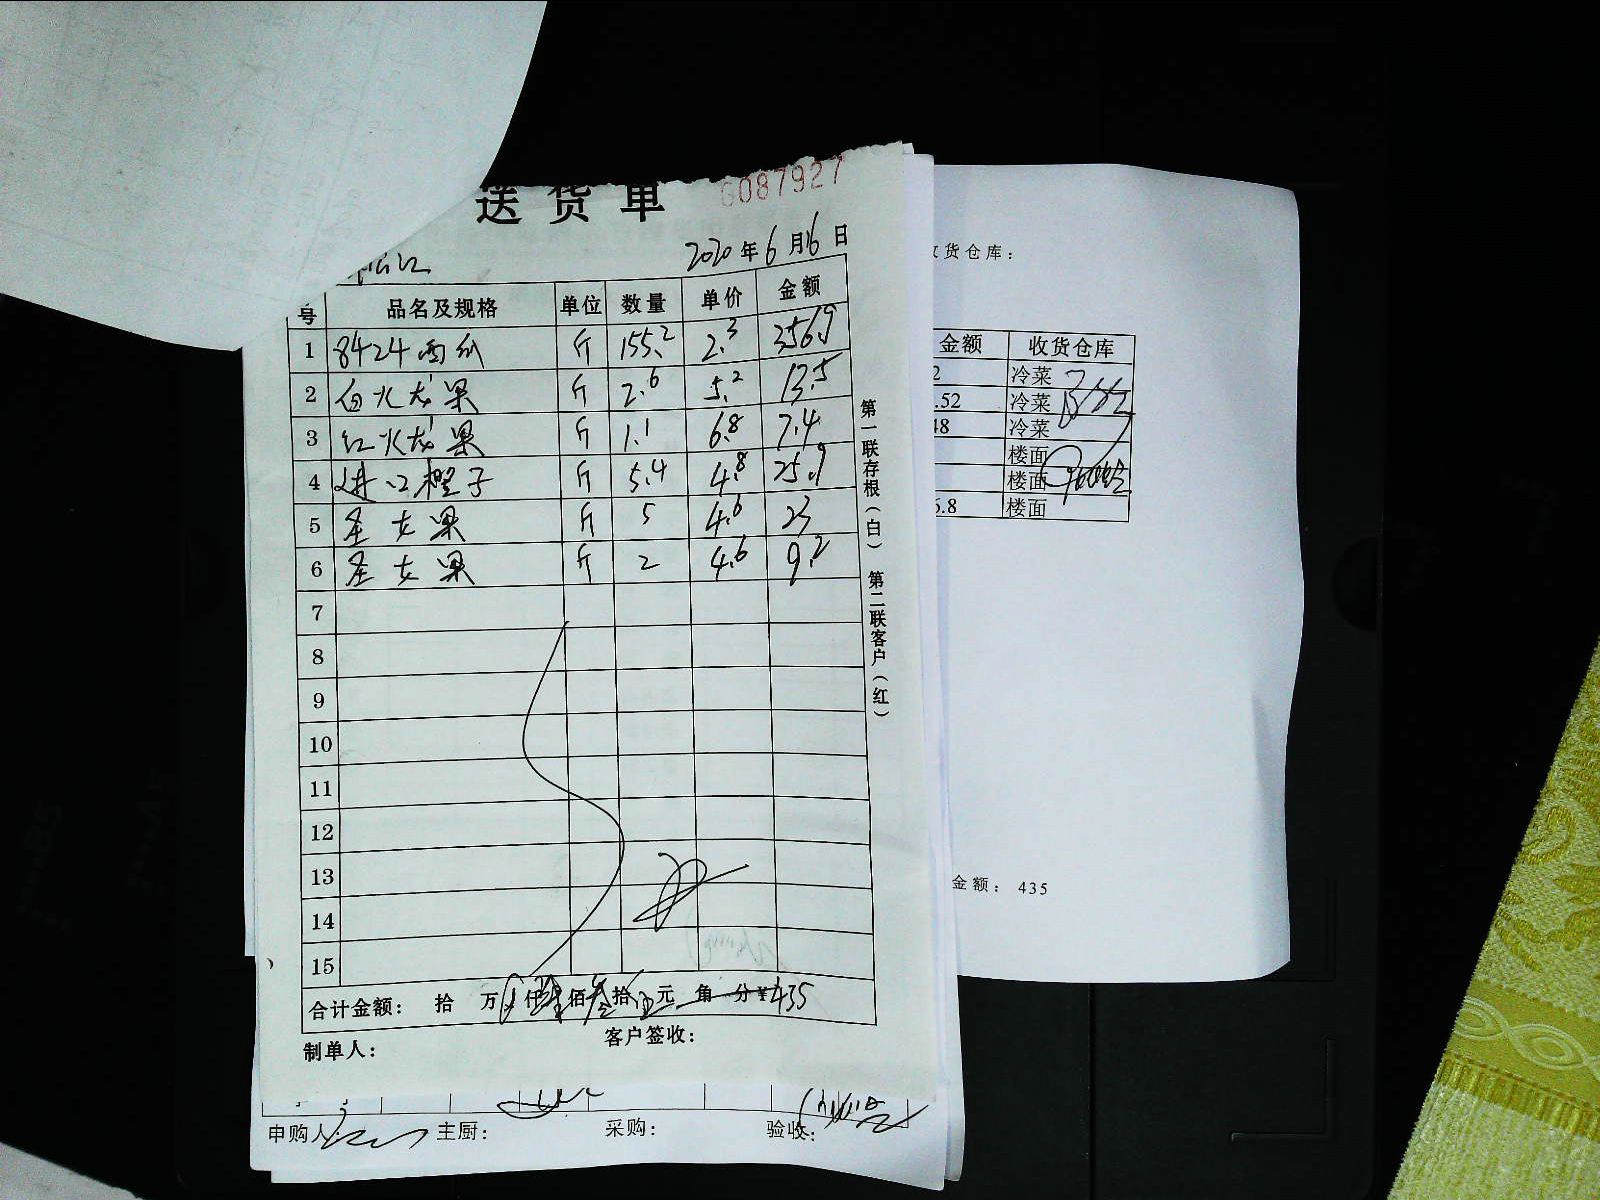 送货单 6087927
松江 2020年6月16日
号 品名及规格 单位 数量 单价 金额
1 8424西瓜 斤 155.2 2.3 356.9
2 白火龙果 斤 2.6 5.2 13.5
3 红火龙果 斤 1.1 6.8 7.4
4 进口橙子 斤 5.4 4.8 25.9
5 圣女果 斤 5 4.6 23
6 圣女果 斤 2 4.6 9.2
7
8
9
10
11
12
13
14
15
合计金额: 拾 万 仟肆佰叁拾伍元 角 分¥435
制单人: 客户签收:
第一联存根(白) 第二联客户(红)
申购人: 主厨: 采购: 验收:
货仓库:
金额 收货仓库
2 冷菜
.52 冷菜
48 冷菜
楼面
楼面
6.8 楼面
金额: 435